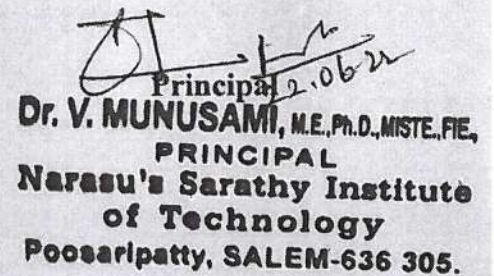 Principal
2.06.22
Dr. V. MUNUSAMI, M.E.,Ph.D.,MISTE.,FIE.,
PRINCIPAL
Narasu's Sarathy Institute
of Technology
Poosaripatty, SALEM-636 305.